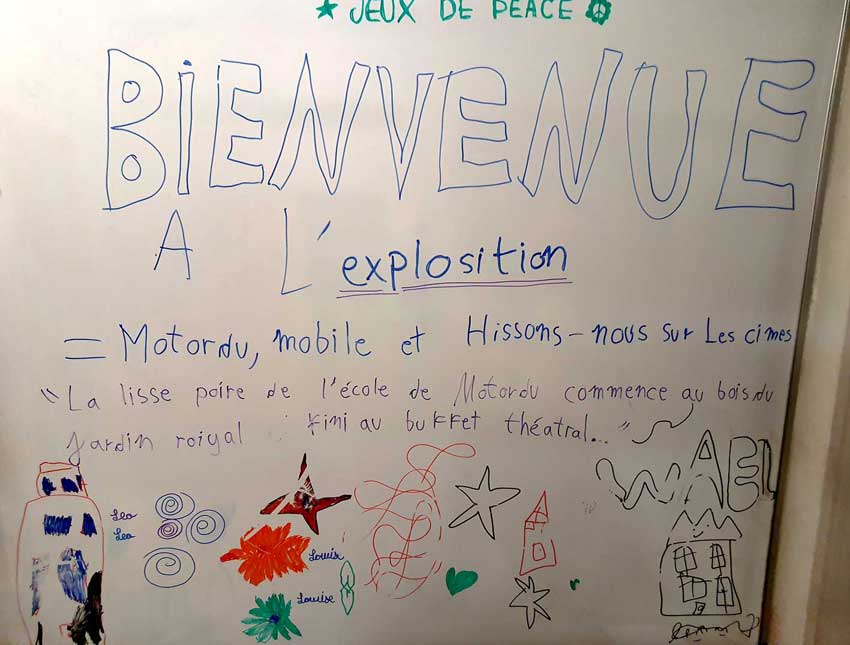 ★ JEUX DE PEACE ☮
BIENVENUE
A L'explosition
= Motordu, mobile et Hissons-nous sur Les cimes
"La lisse poire de l'école de Motordu commence au bois du
Jardin roiyal : Fini au buffet théatral..."
WAEL
Lea
Lea
Louise
Louise